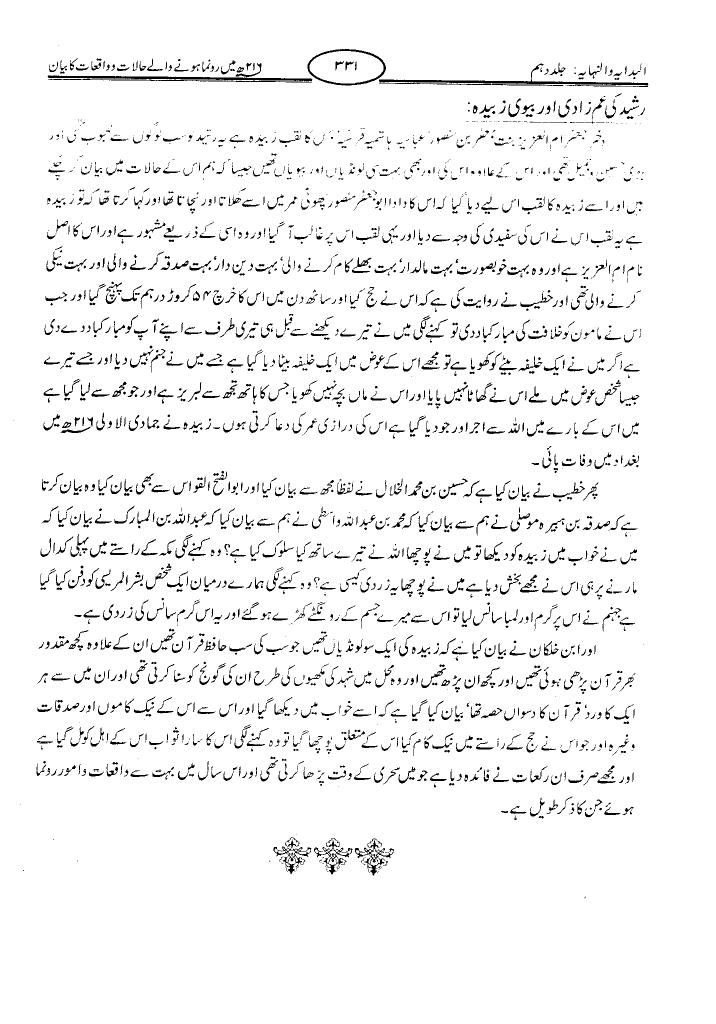 البدایہ والنہایہ: جلد دہم
۳۳۱
۲۱۶ھ میں رونما ہونے والے حالات و واقعات کا بیان
رشید کی عم زادی اور بیوی زبیدہ:
جعفر ام العزیز بنت جعفر بن منصور عباسیہ ہاشمیہ قرشیہ کا لقب زبیدہ ہے یہ رشید کو سب لوگوں سے محبوب تھی اور
حسین و جمیل تھی اور اس کے علاوہ اس کی اور بھی بہت سی لونڈیاں اور بیویاں تھیں جیسا کہ ہم اس کے حالات میں بیان کر چکے
ہیں اور اسے زبیدہ کا لقب اس لیے دیا گیا کہ اس کا دادا ابوجعفر منصور چھوٹی عمر میں اسے کھلاتا اور نچاتا تھا اور کہا کرتا تھا کہ تو زبیدہ
ہے یہ لقب اس نے اس کی سفیدی کی وجہ سے دیا اور یہی لقب اس پر غالب آ گیا اور وہ اسی کے ذریعے مشہور ہے اور اس کا اصل
نام ام العزیز ہے اور وہ بہت خوبصورت‘ بہت مالدار‘ بہت بھلے کام کرنے والی‘ بہت دین دار‘ بہت صدقہ کرنے والی اور بہت نیکی
کرنے والی تھی اور خطیب نے روایت کی ہے کہ اس نے حج کیا اور ساٹھ دن میں اس کا خرچ ۵۴ کروڑ درہم تک پہنچ گیا اور جب
اس نے مامون کو خلافت کی مبارکباد دی تو کہنے لگی میں نے تیرے دیکھنے سے قبل ہی تیری طرف سے اپنے آپ کو مبارکباد دے دی
ہے اگر میں نے ایک خلیفہ بیٹے کو کھویا ہے تو مجھے اس کے عوض میں ایک خلیفہ بیٹا دیا گیا ہے جسے میں نے جنم نہیں دیا اور جسے تیرے
جیسا شخص عوض میں ملے اس نے گھاٹا نہیں پایا اور اس نے ماں بچہ نہیں کھویا جس کا ہاتھ تجھ سے لبریز ہے اور جو مجھ سے لیا گیا ہے
میں اس کے بارے میں اللہ سے اجر اور جو دیا گیا ہے اس کی درازی عمر کی دعا کرتی ہوں۔ زبیدہ نے جمادی الاولی ۲۱۶ھ میں
بغداد میں وفات پائی۔
پھر خطیب نے بیان کیا ہے کہ حسین بن محمد الخلال نے لفظاً مجھ سے بیان کیا اور ابوالفتح القواس سے بھی بیان کیا وہ بیان کرتا
ہے کہ صدقہ بن ہبیرہ موصلی نے ہم سے بیان کیا کہ محمد بن عبداللہ واسطی نے ہم سے بیان کیا کہ عبداللہ بن المبارک نے بیان کیا کہ
میں نے خواب میں زبیدہ کو دیکھا تو میں نے پوچھا اللہ نے تیرے ساتھ کیا سلوک کیا ہے؟ وہ کہنے لگی مکہ کے راستے میں پہلی کدال
مارنے پر ہی اس نے مجھے بخش دیا ہے میں نے پوچھا یہ زردی کیسی ہے؟ وہ کہنے لگی ہمارے درمیان ایک شخص بشر المریسی کو دفن کیا گیا
ہے جہنم نے اس پر گرم اور لمبا سانس لیا تو اس سے میرے جسم کے رونگٹے کھڑے ہو گئے اور یہ اس گرم سانس کی زردی ہے۔
اور ابن خلکان نے بیان کیا ہے کہ زبیدہ کی ایک سو لونڈیاں تھیں جو سب کی سب حافظ قرآن تھیں ان کے علاوہ کچھ مقدور
بھر قرآن پڑھی ہوئی تھیں اور کچھ ان پڑھ تھیں اور وہ محل میں شہد کی مکھیوں کی طرح ان کی گونج کو سنا کرتی تھی اور ان میں سے ہر
ایک کا ورد‘ قرآن کا دسواں حصہ تھا‘ بیان کیا گیا ہے کہ اسے خواب میں دیکھا گیا اور اس سے اس کے نیک کاموں اور صدقات
وغیرہ اور جو اس نے حج کے راستے میں نیک کام کیا اس کے متعلق پوچھا گیا تو وہ کہنے لگی اس کا سارا ثواب اس کے اہل کو مل گیا ہے
اور مجھے صرف ان رکعات نے فائدہ دیا ہے جو میں سحری کے وقت پڑھا کرتی تھی اور اس سال میں بہت سے واقعات و امور رونما
ہوئے جن کا ذکر طویل ہے۔